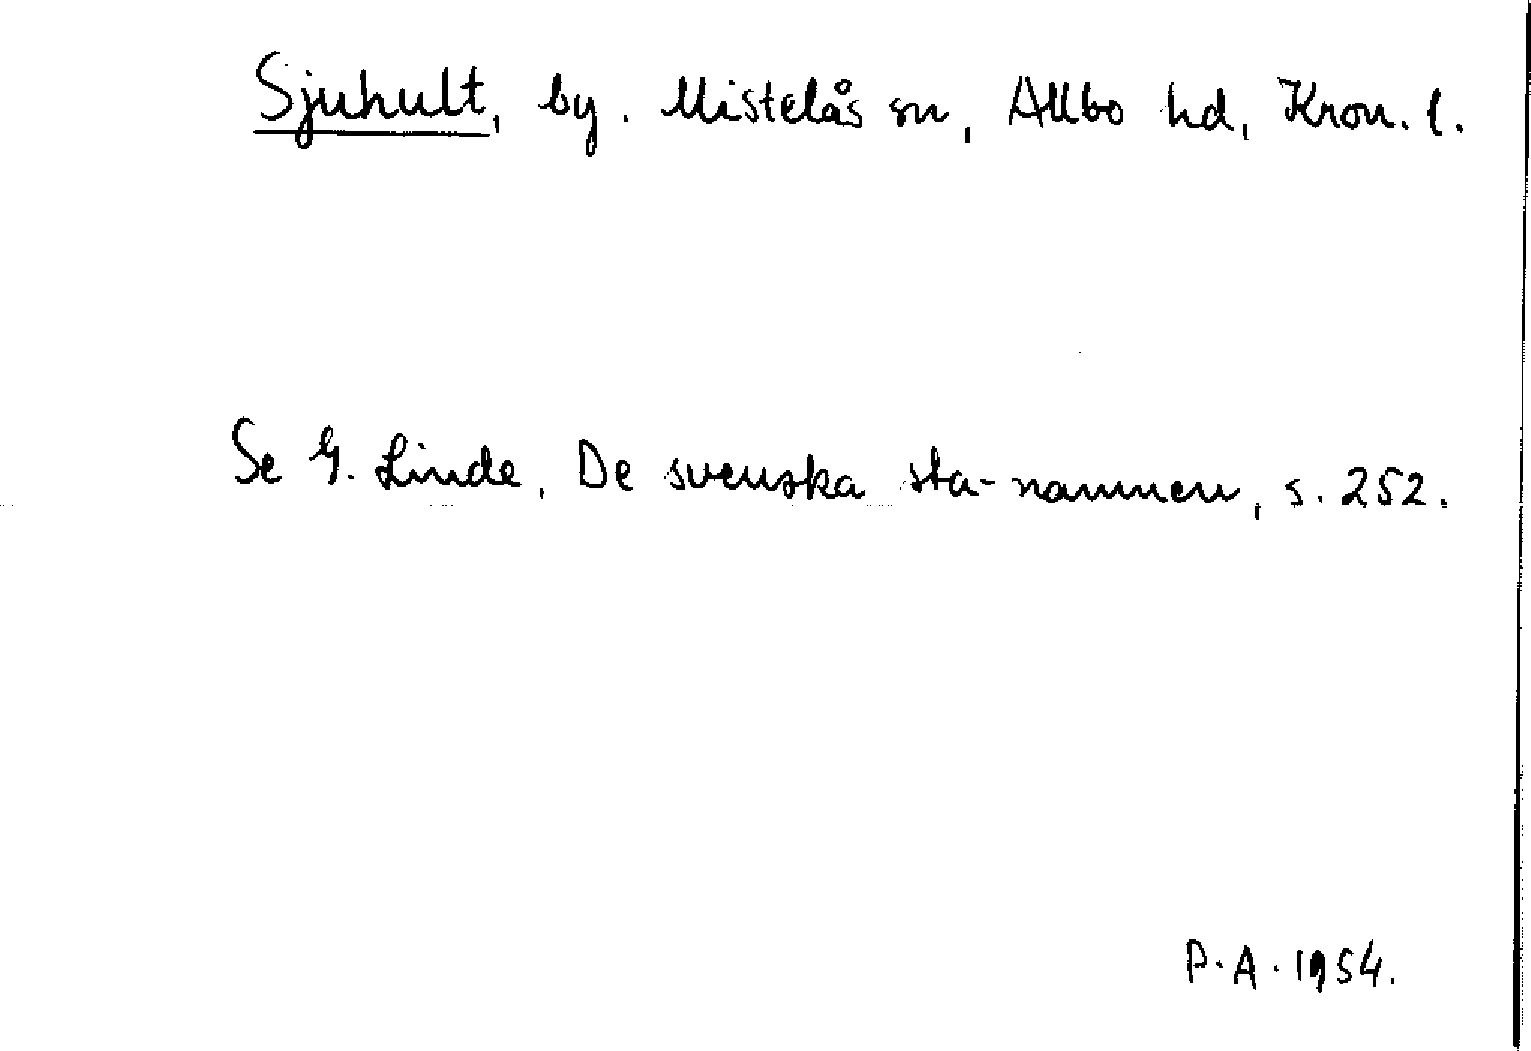 Sjuhult, by. Mistelås sn, Allbo hd, Kron. l.
Se G. Linde, De svenska sta-namnen, s. 252.
P.A. 1954.